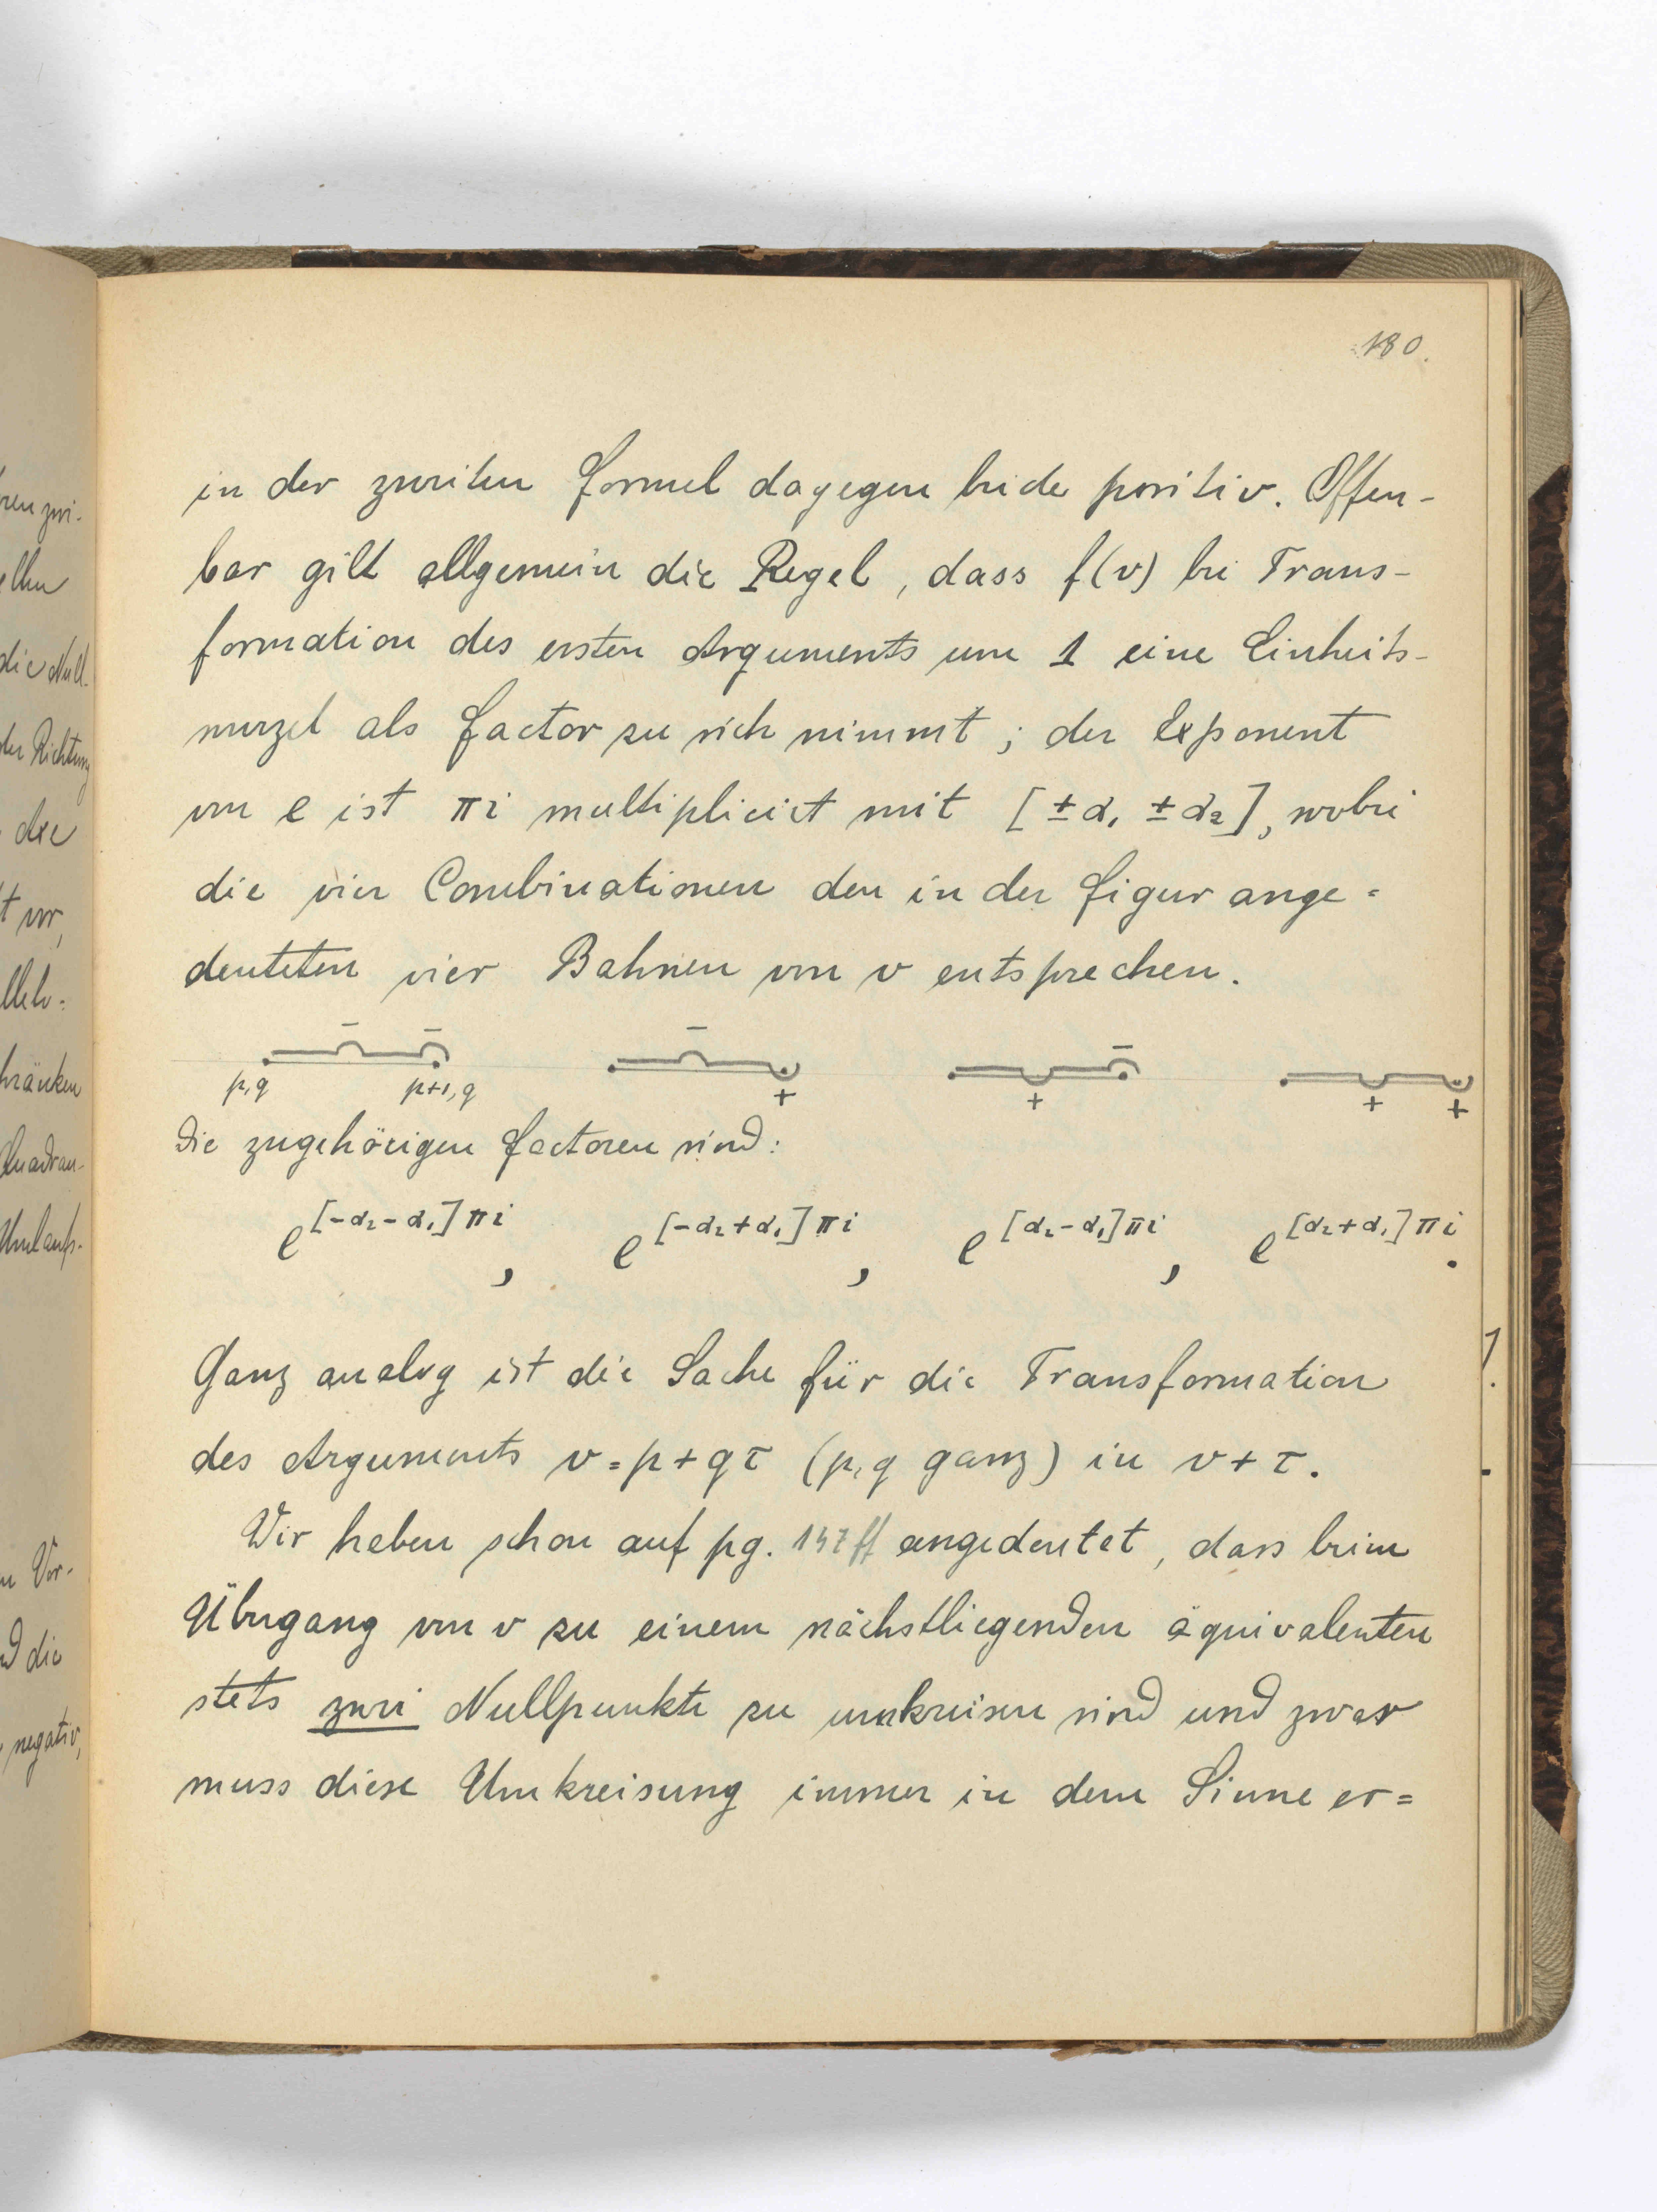 180.
in der zweiten Formel dagegen beide positiv. Offen-
bar gilt allgemein die Regel, dass f(v) bei Trans-
formation des ersten Arguments um 1 eine Einheits-
wurzel als Factor zu sich nimmt; der Exponent
von e ist πi multiplicirt mit [±α₁ ±α₂], wobei
die vier Combinationen den in der Figur ange=
deuteten vier Bahnen von v entsprechen.
− − − −
p,q p+1,q + + + +
Die zugehörigen Factoren sind:
e^{[-α₂-α₁]πi}, e^{[-α₂+α₁]πi}, e^{[α₂-α₁]πi}, e^{[α₂+α₁]πi}.
Ganz analog ist die Sache für die Transformation
des Arguments v=p+qτ (p,q ganz) in v+τ.
Wir haben schon auf pg. 147ff angedeutet, dass beim
Übergang von v zu einem nächstliegenden äquivalenten
stets zwei Nullpunkte zu umkreisen sind und zwar
muss diese Umkreisung immer in dem Sinne er=
ren zwi-
die Null-
der Richtung
die
t vor,
hränken
Quadran-
Umlaufs-
n Vor-
d die
negativ,